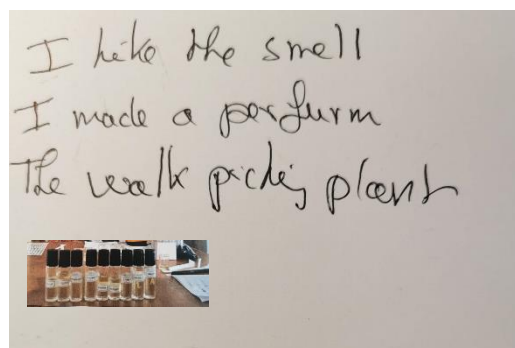 I like the smell
I made a perfurm
The walk picking plants